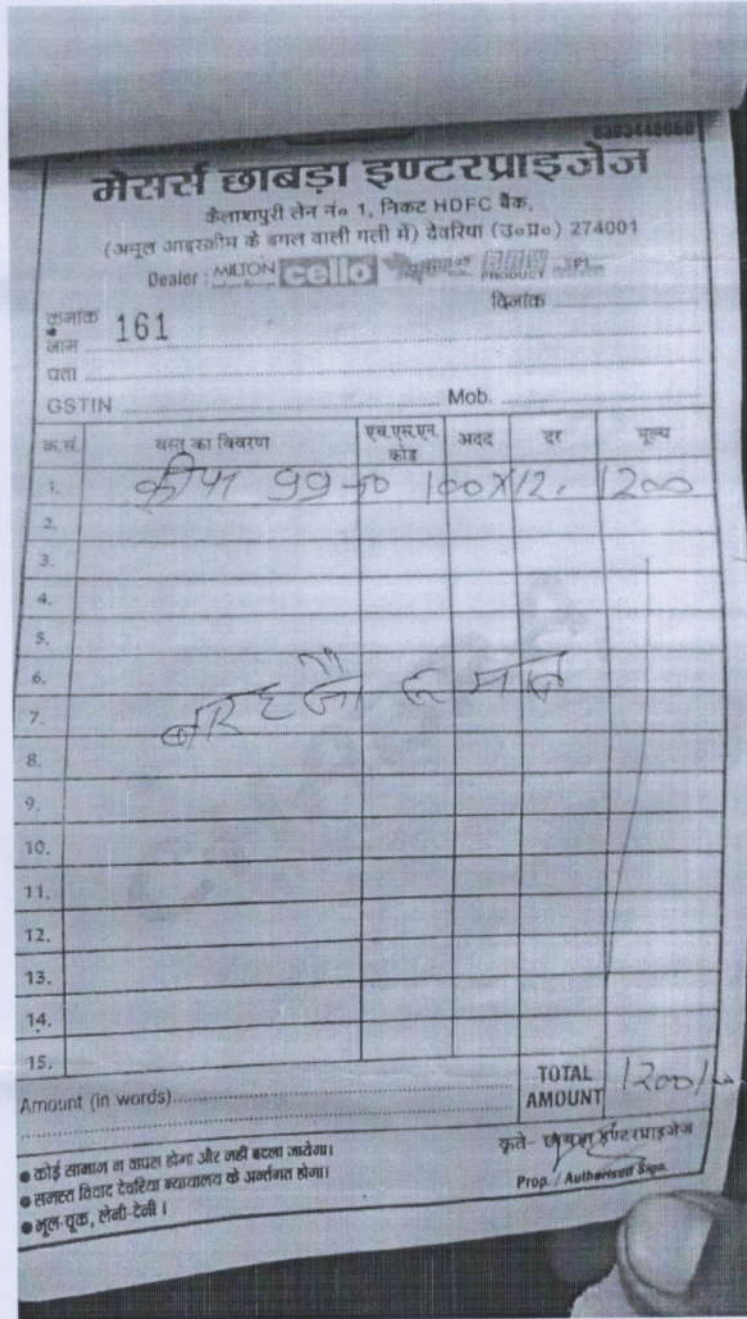 मेसर्स छाबड़ा इण्टरप्राइजेज
कैलाशपुरी लेन नं० 1, निकट HDFC बैंक,
(अमूल आइसक्रीम के बगल वाली गली में) देवरिया (उ०प्र०) 274001
Dealer : MILTON cello PRODUCT
क्रमांक 161 दिनांक
नाम
पता
GSTIN Mob.
क्र.सं. वस्तु का विवरण एच.एस.एन. कोड अदद दर मूल्य
1. 100X12. 1200
2.
3.
4.
5.
6.
7.
8.
9.
10.
11.
12.
13.
14.
15.
Amount (in words) TOTAL AMOUNT 1200/-
कृते- छाबड़ा इण्टरप्राइजेज
● कोई सामान न वापस होगा और नही बदला जायेगा।
● समस्त विवाद देवरिया न्यायालय के अर्न्तगत होगा।
● भूल-चूक, लेनी-देनी ।
Prop. / Authorised Sign.